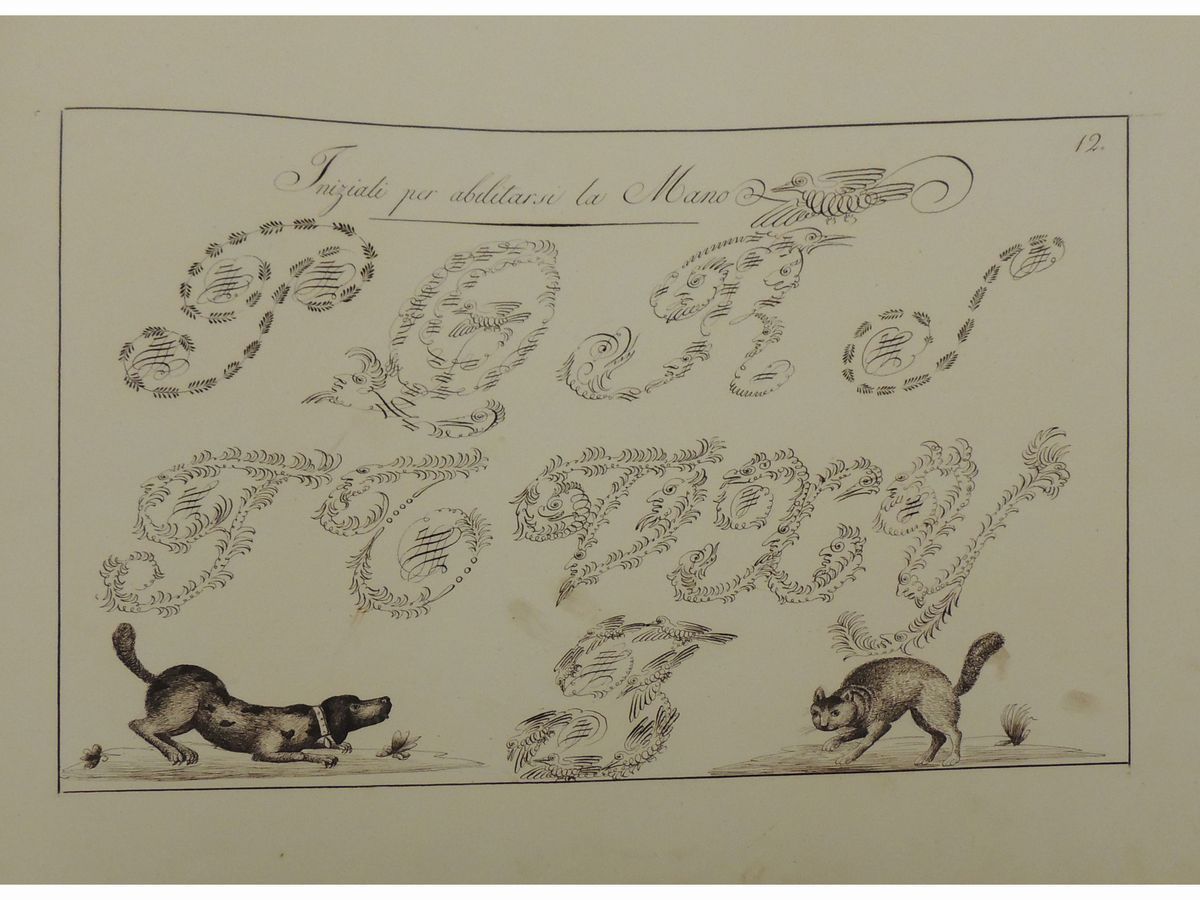 12.
Iniziali per abilitarsi la Mano
P Q R S
T X Y
Z